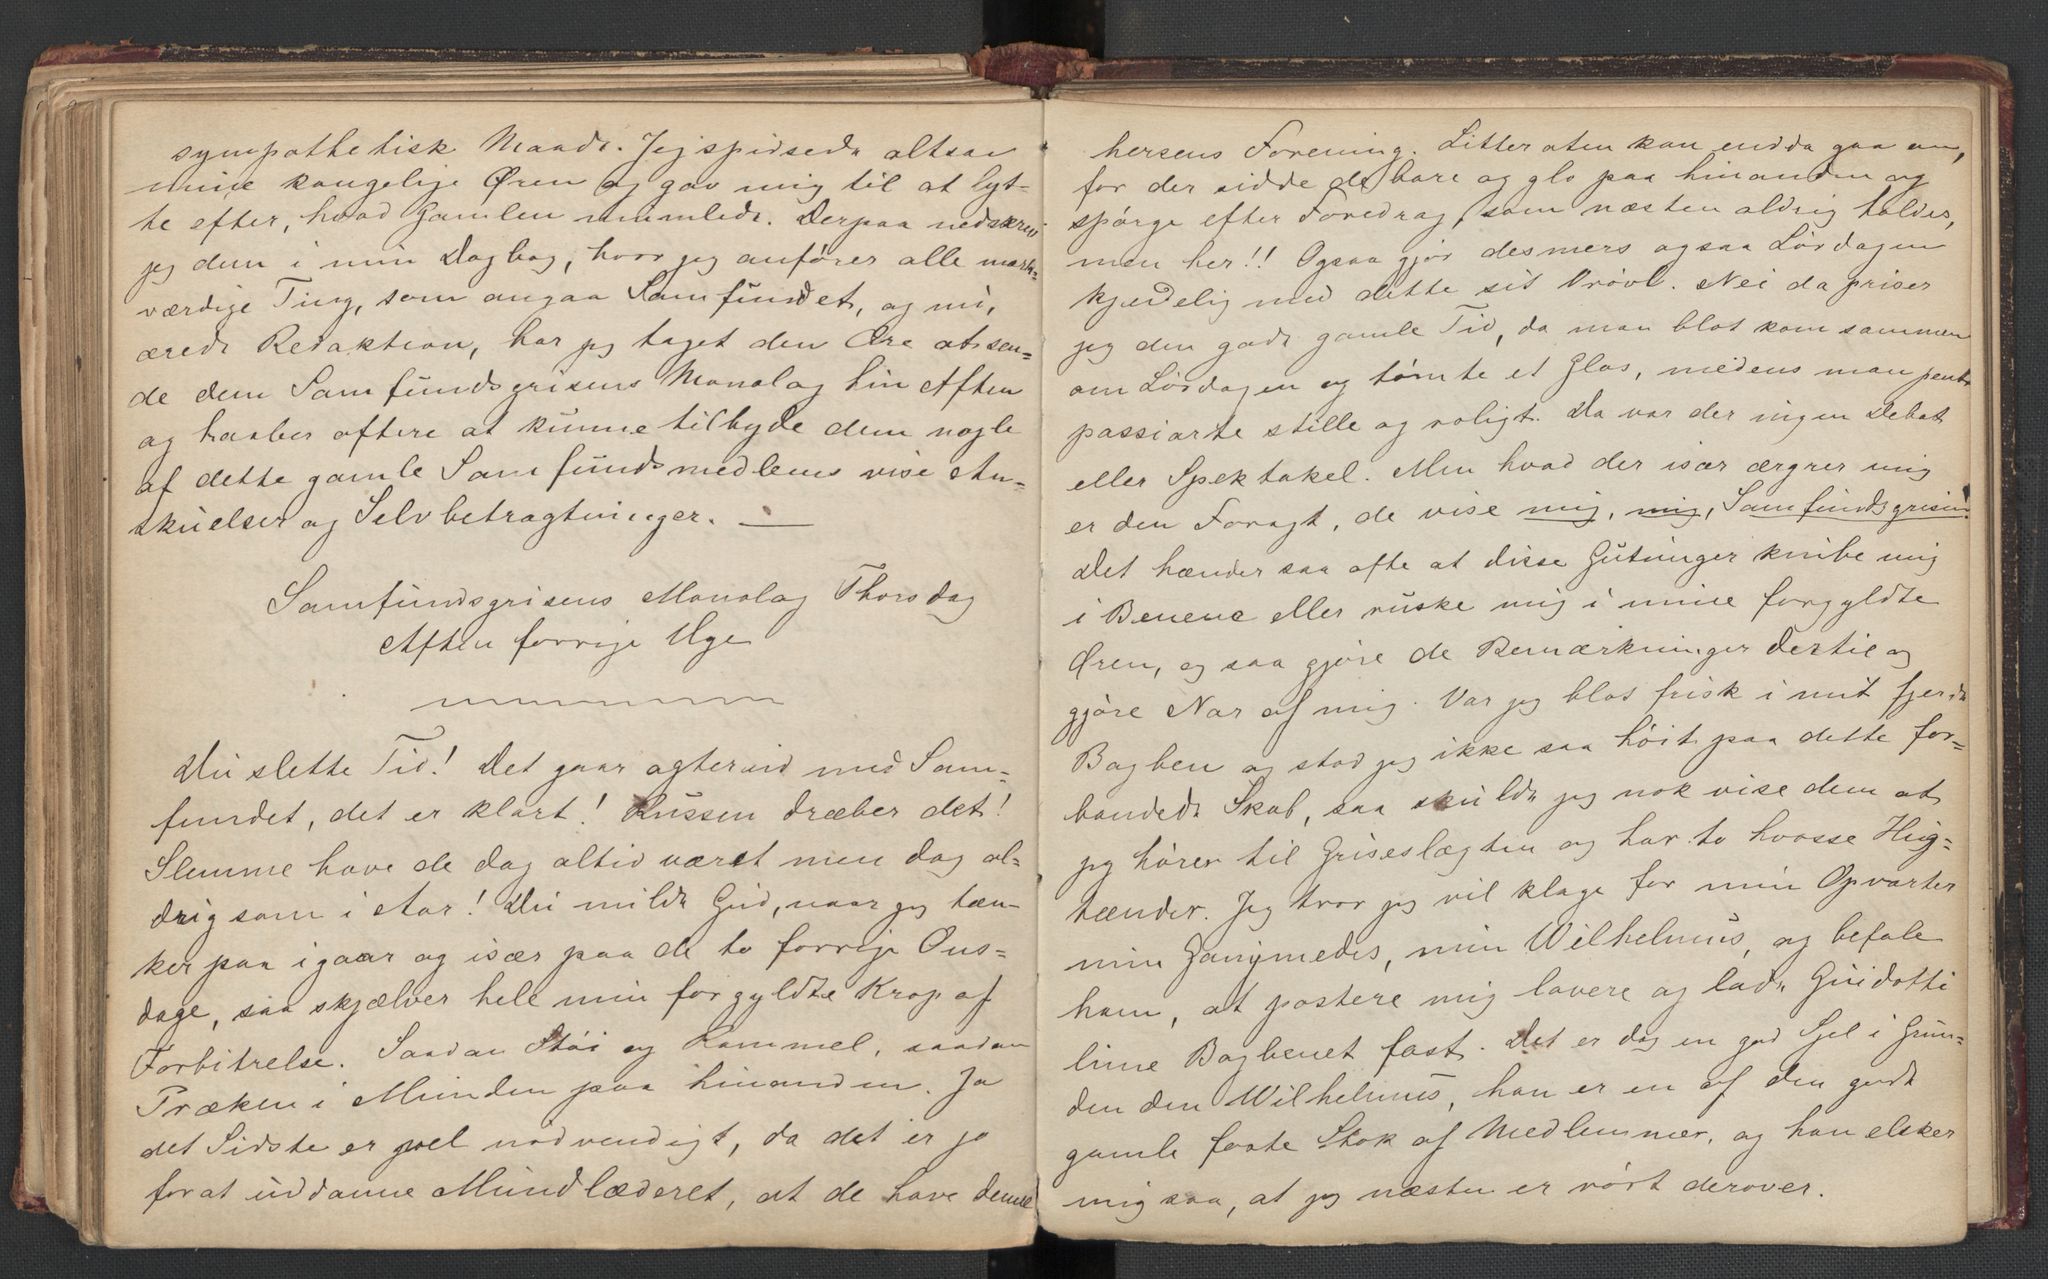 sympathetisk Maade. Jeg spidsede altsaa
mine kongelige Øren og gav mig til at lyt-
te efter, hvad Gamlen mumlede. Derpaa nedskrev
jeg dem i min Dagbog, hvor jeg anfører alle mærk-
værdige Ting, som angaa Samfundet, og nu,
ærede Redaktion, har jeg taget den Ære at sen-
de dem Samfundsgrisens Monolog hin Aften
og haaber oftere at kunne tilbyde dem nogle
af dette gamle Samfundsmedlems vise An-
skuelser og Selvbetragtninger. —
Samfundsgrisens Monolog Thorsdag
Aften forrige Uge
Du slette Tid! Det gaar agterud med Sam-
fundet, det er klart! Russen dræber det!
Slemme have de dog altid været men dog al-
drig som i Aar! Du milde Gud, naar jeg tæn-
ker paa igaar og især paa de to forrige Ons-
dage, saa skjælver hele min forgyldte Krop af
Forbitrelse. Saadan Støi og Rammel, saadan
Præken i Munden paa hinanden. Ja
det Sidste er vel nødvendigt, da det er jo
for at uddanne Mundlæderet, at de have denne
hersens Forening. Litteraten kan endda gaa an,
for der sidde de bare og glo paa hinanden og
spørge efter Foredrag, som næsten aldrig holdes,
men her!! Ogsaa gjør desmers ogsaa Lørdagen
kjedelig med dette sit Vrøvl. Nei da priser
jeg den gode gamle Tid, da man blot kom sammen
om Lørdagen og tømte et Glas, medens man pent
passiarte stille og roligt. Da var der ingen Debat
eller Spektakel. Men hvad der især ærgrer mig
er den Foragt, de vise mig, mig, Samfundsgrisen!
Det hænder saa ofte at disse Gutunger knibe mig
i Benene eller ruske mig i mine forgyldte
Øren, og saa gjøre de Bemærkninger dertil og
gjøre Nar af mig. Var jeg blot frisk i mit fjerde
Bagben og stod jeg ikke saa høit paa dette for-
bandede Skab, saa skulde jeg nok vise dem at
jeg hører til Griseslægten og har to hvasse Hug-
tænder. Jeg tror jeg vil klage for min Opvarter
min Ganymedes, min Wilhelmus, og befale
ham, at postere mig lavere og lade Guidotti
lime Bagbenet fast. Det er dog en god Sjel i Grun-
den den Wilhelmus, han er en af den gode
gamle faste Stok af Medlemmer, og han elsker
mig saa, at jeg næsten er rørt derover.